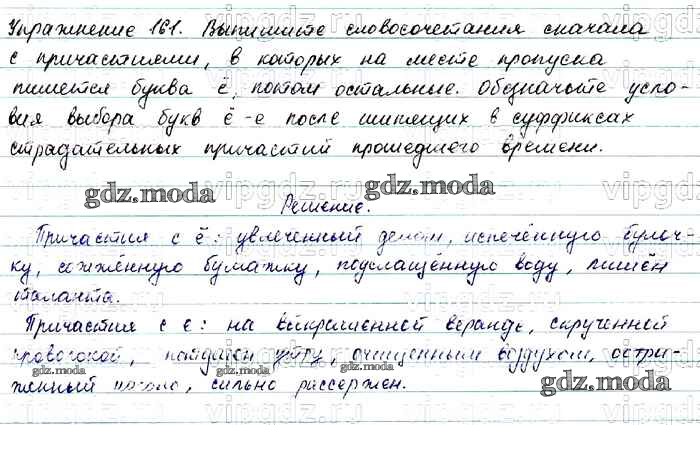 Упражнение 161. Выпишите словосочетания сначала
с причастиями, в которых на месте пропуска
пишется буква ё, потом остальные. Обозначьте усло-
вия выбора букв ё-е после шипящих в суффиксах
страдательных причастий прошедшего времени.
gdz.moda gdz.moda
Решение.
Причастия с ё: увлечённый делом, испечённую булоч-
ку, сожжённую бумажку, подслащённую воду, лишён
таланта.
Причастия с е: на выкрашенной веранде, скрученной
проволокой, утру, очищенным воздухом, остри-
женный наголо, сильно рассержен.
gdz.moda gdz.moda gdz.moda